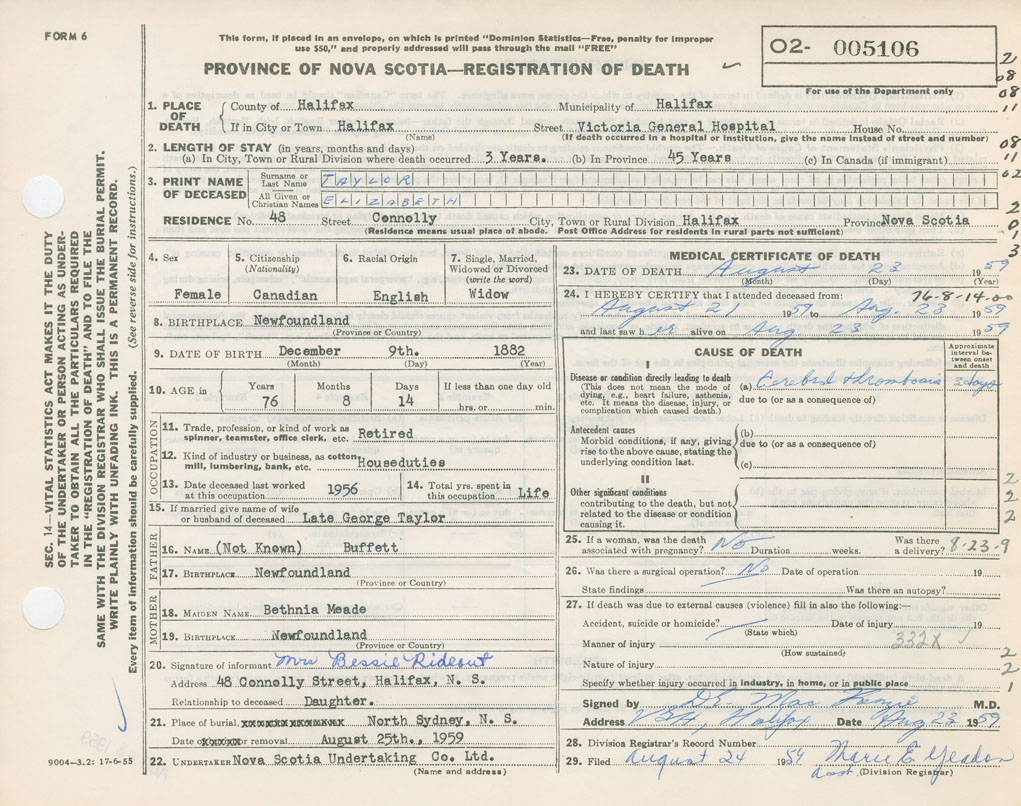 FORM 6
This form, if placed in an envelope, on which is printed "Dominion Statistics—Free, penalty for improper
use $50," and properly addressed will pass through the mail "FREE"
PROVINCE OF NOVA SCOTIA—REGISTRATION OF DEATH
O2- 005106
For use of the Department only
1. PLACE OF DEATH
County of Halifax Municipality of Halifax
If in City or Town Halifax Street Victoria General Hospital House No.
(Name) (If death occurred in a hospital or institution, give the name instead of street and number)
2. LENGTH OF STAY (in years, months and days)
(a) In City, Town or Rural Division where death occurred 3 Years. (b) In Province 45 Years (c) In Canada (if immigrant)
3. PRINT NAME OF DECEASED
Surname or Last Name TAYLOR
All Given or Christian Names ELIZABETH
RESIDENCE No. 48 Street Connolly City, Town or Rural Division Halifax Province Nova Scotia
(Residence means usual place of abode. Post Office Address for residents in rural parts not sufficient)
4. Sex
Female
5. Citizenship
(Nationality)
Canadian
6. Racial Origin
English
7. Single, Married,
Widowed or Divorced
(write the word)
Widow
8. BIRTHPLACE Newfoundland
(Province or Country)
9. DATE OF BIRTH December 9th. 1882
(Month) (Day) (Year)
10. AGE in
Years Months Days If less than one day old
76 8 14 hrs. or min.
OCCUPATION
11. Trade, profession, or kind of work as
spinner, teamster, office clerk, etc. Retired
12. Kind of industry or business, as cotton
mill, lumbering, bank, etc. Houseduties
13. Date deceased last worked
at this occupation 1956
14. Total yrs. spent in
this occupation Life
15. If married give name of wife
or husband of deceased Late George Taylor
FATHER
16. NAME (Not Known) Buffett
17. BIRTHPLACE Newfoundland
(Province or Country)
MOTHER
18. MAIDEN NAME Bethnia Meade
19. BIRTHPLACE Newfoundland
(Province or Country)
20. Signature of informant Mrs Bessie Rideout
Address 48 Connolly Street, Halifax, N. S.
Relationship to deceased Daughter.
21. Place of burial, North Sydney, N. S.
Date or removal August 25th., 1959
22. UNDERTAKER Nova Scotia Undertaking Co. Ltd.
(Name and address)
MEDICAL CERTIFICATE OF DEATH
23. DATE OF DEATH August 23 1959
(Month) (Day) (Year)
24. I HEREBY CERTIFY that I attended deceased from: 76-8-14-00
August 21 1959 to Aug. 23 1959
and last saw her alive on Aug 23 1959
CAUSE OF DEATH
Approximate
interval be-
tween onset
and death
I
Disease or condition directly leading to death
(This does not mean the mode of
dying, e.g., heart failure, asthenia,
etc. It means the disease, injury, or
complication which caused death.)
(a) Cerebral thrombosis 3 days
due to (or as a consequence of)
Antecedent causes
Morbid conditions, if any, giving
rise to the above cause, stating the
underlying condition last.
(b)
due to (or as a consequence of)
(c)
II
Other significant conditions
contributing to the death, but not
related to the disease or condition
causing it.
25. If a woman, was the death
associated with pregnancy? No Duration weeks.
Was there
a delivery? 8-23-9
26. Was there a surgical operation? No Date of operation 19
State findings Was there an autopsy?
27. If death was due to external causes (violence) fill in also the following:—
Accident, suicide or homicide? Date of injury 19
(State which)
Manner of injury 332X
(How sustained)
Nature of injury
Specify whether injury occurred in industry, in home, or in public place
Signed by M.D.
Address VGH, Halifax Date Aug 23 1959
28. Division Registrar's Record Number
29. Filed August 24 1959 Marie E Yeadon
Asst. (Division Registrar)
SEC. 14—VITAL STATISTICS ACT MAKES IT THE DUTY
OF THE UNDERTAKER OR PERSON ACTING AS UNDER-
TAKER TO OBTAIN ALL THE PARTICULARS REQUIRED
IN THE "REGISTRATION OF DEATH" AND TO FILE THE
SAME WITH THE DIVISION REGISTRAR WHO SHALL ISSUE THE BURIAL PERMIT.
WRITE PLAINLY WITH UNFADING INK. THIS IS A PERMANENT RECORD.
Every item of information should be carefully supplied. (See reverse side for instructions.)
9004-3.2: 17-6-55
2
08
08
11
08
11
02
2
0
1
3
2
2
2
2
2
1